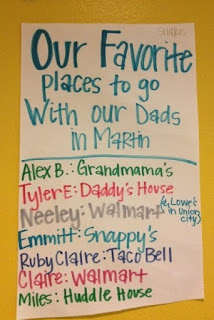 snakes
Our Favorite
places to go
With our Dads
in Martin
Alex B.: Grandmama's
Tyler E: Daddy's House
Neeley: Walmart (& Lowe's
in Union
city)
Emmitt: Snappy's
Ruby Claire: Taco Bell
Claire: Walmart
Miles: Huddle House